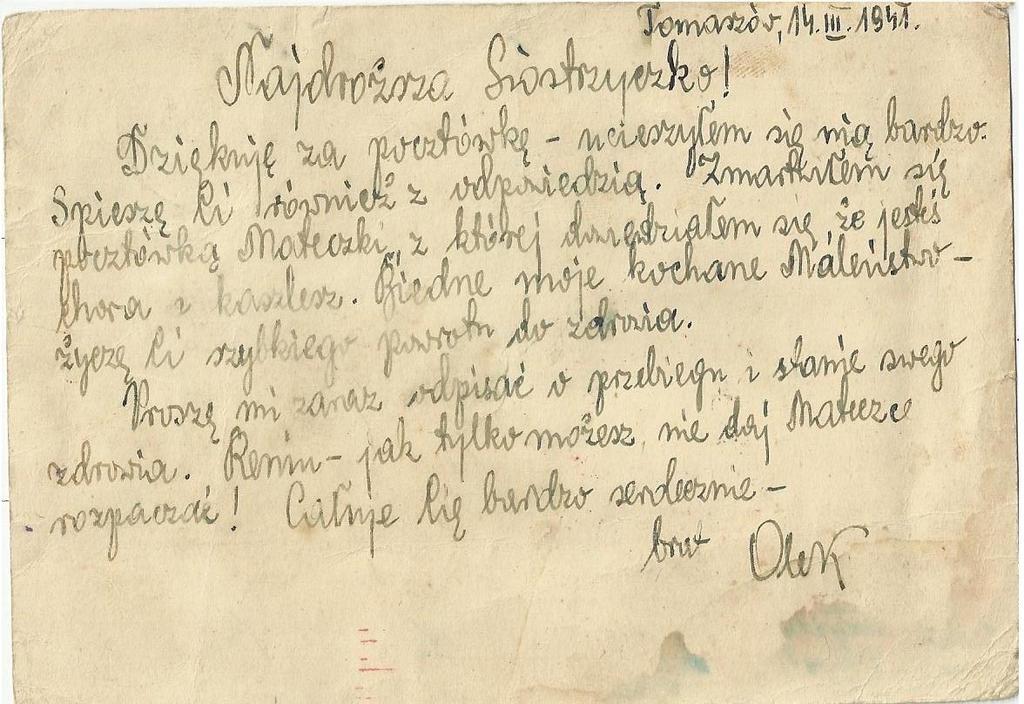 Tomaszów, 14.III.1941.
Najdroższa Siostrzyczko!
Dziękuję za pocztówkę – ucieszyłem się nią bardzo.
Spieszę Ci również z odpowiedzią. Zmartwiłem się
pocztówką Mateczki, z której dowiedziałem się, że jesteś
chora i kaszlesz. Biedne moje kochane Maleństwo –
życzę Ci szybkiego powrotu do zdrowia.
Proszę mi zaraz odpisać o przebiegu i stanie swego
zdrowia. Reniu – jak tylko możesz, nie daj Mateczce
rozpaczać! Całuję Cię bardzo serdecznie –
brat Olek